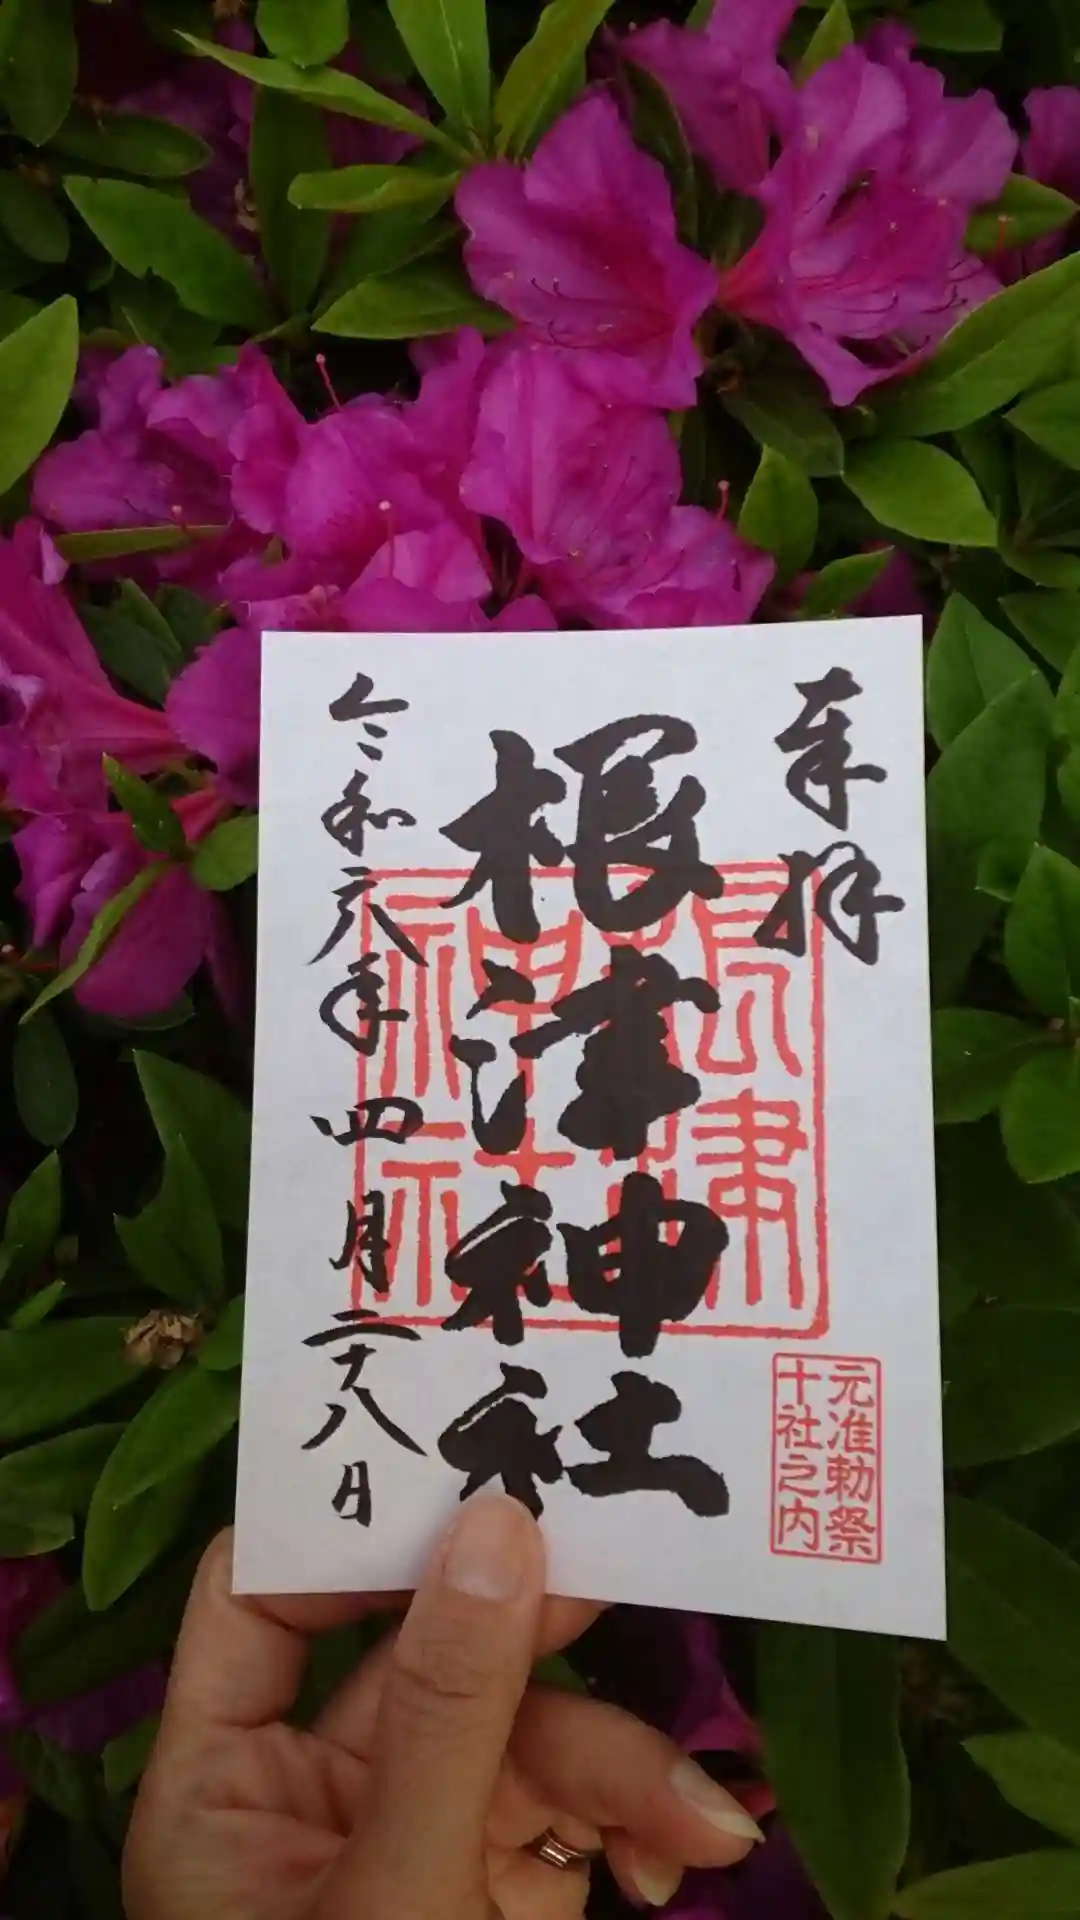 奉拝
元准勅祭
十社之内
根津神社
根津
神社
令和六年四月二十八日